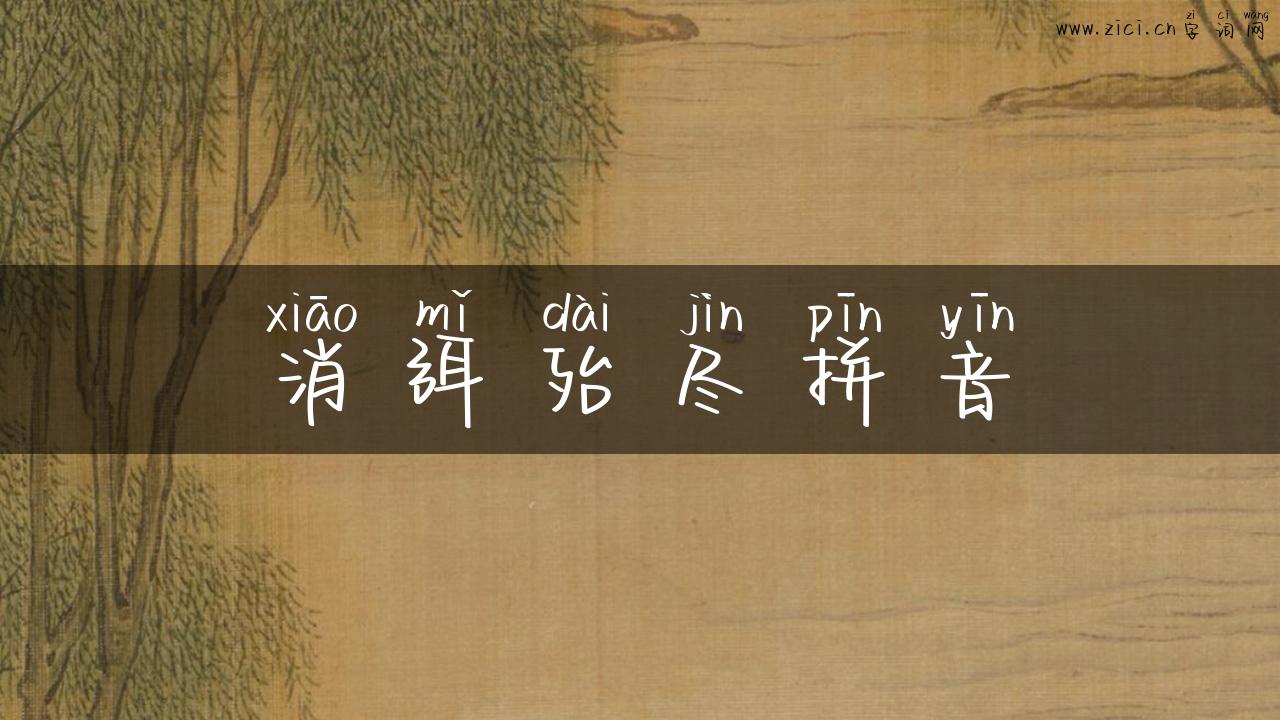 zì cí wǎng
www.zici.cn 字词网
xiāo mǐ dài jìn pīn yīn
消弭殆尽拼音